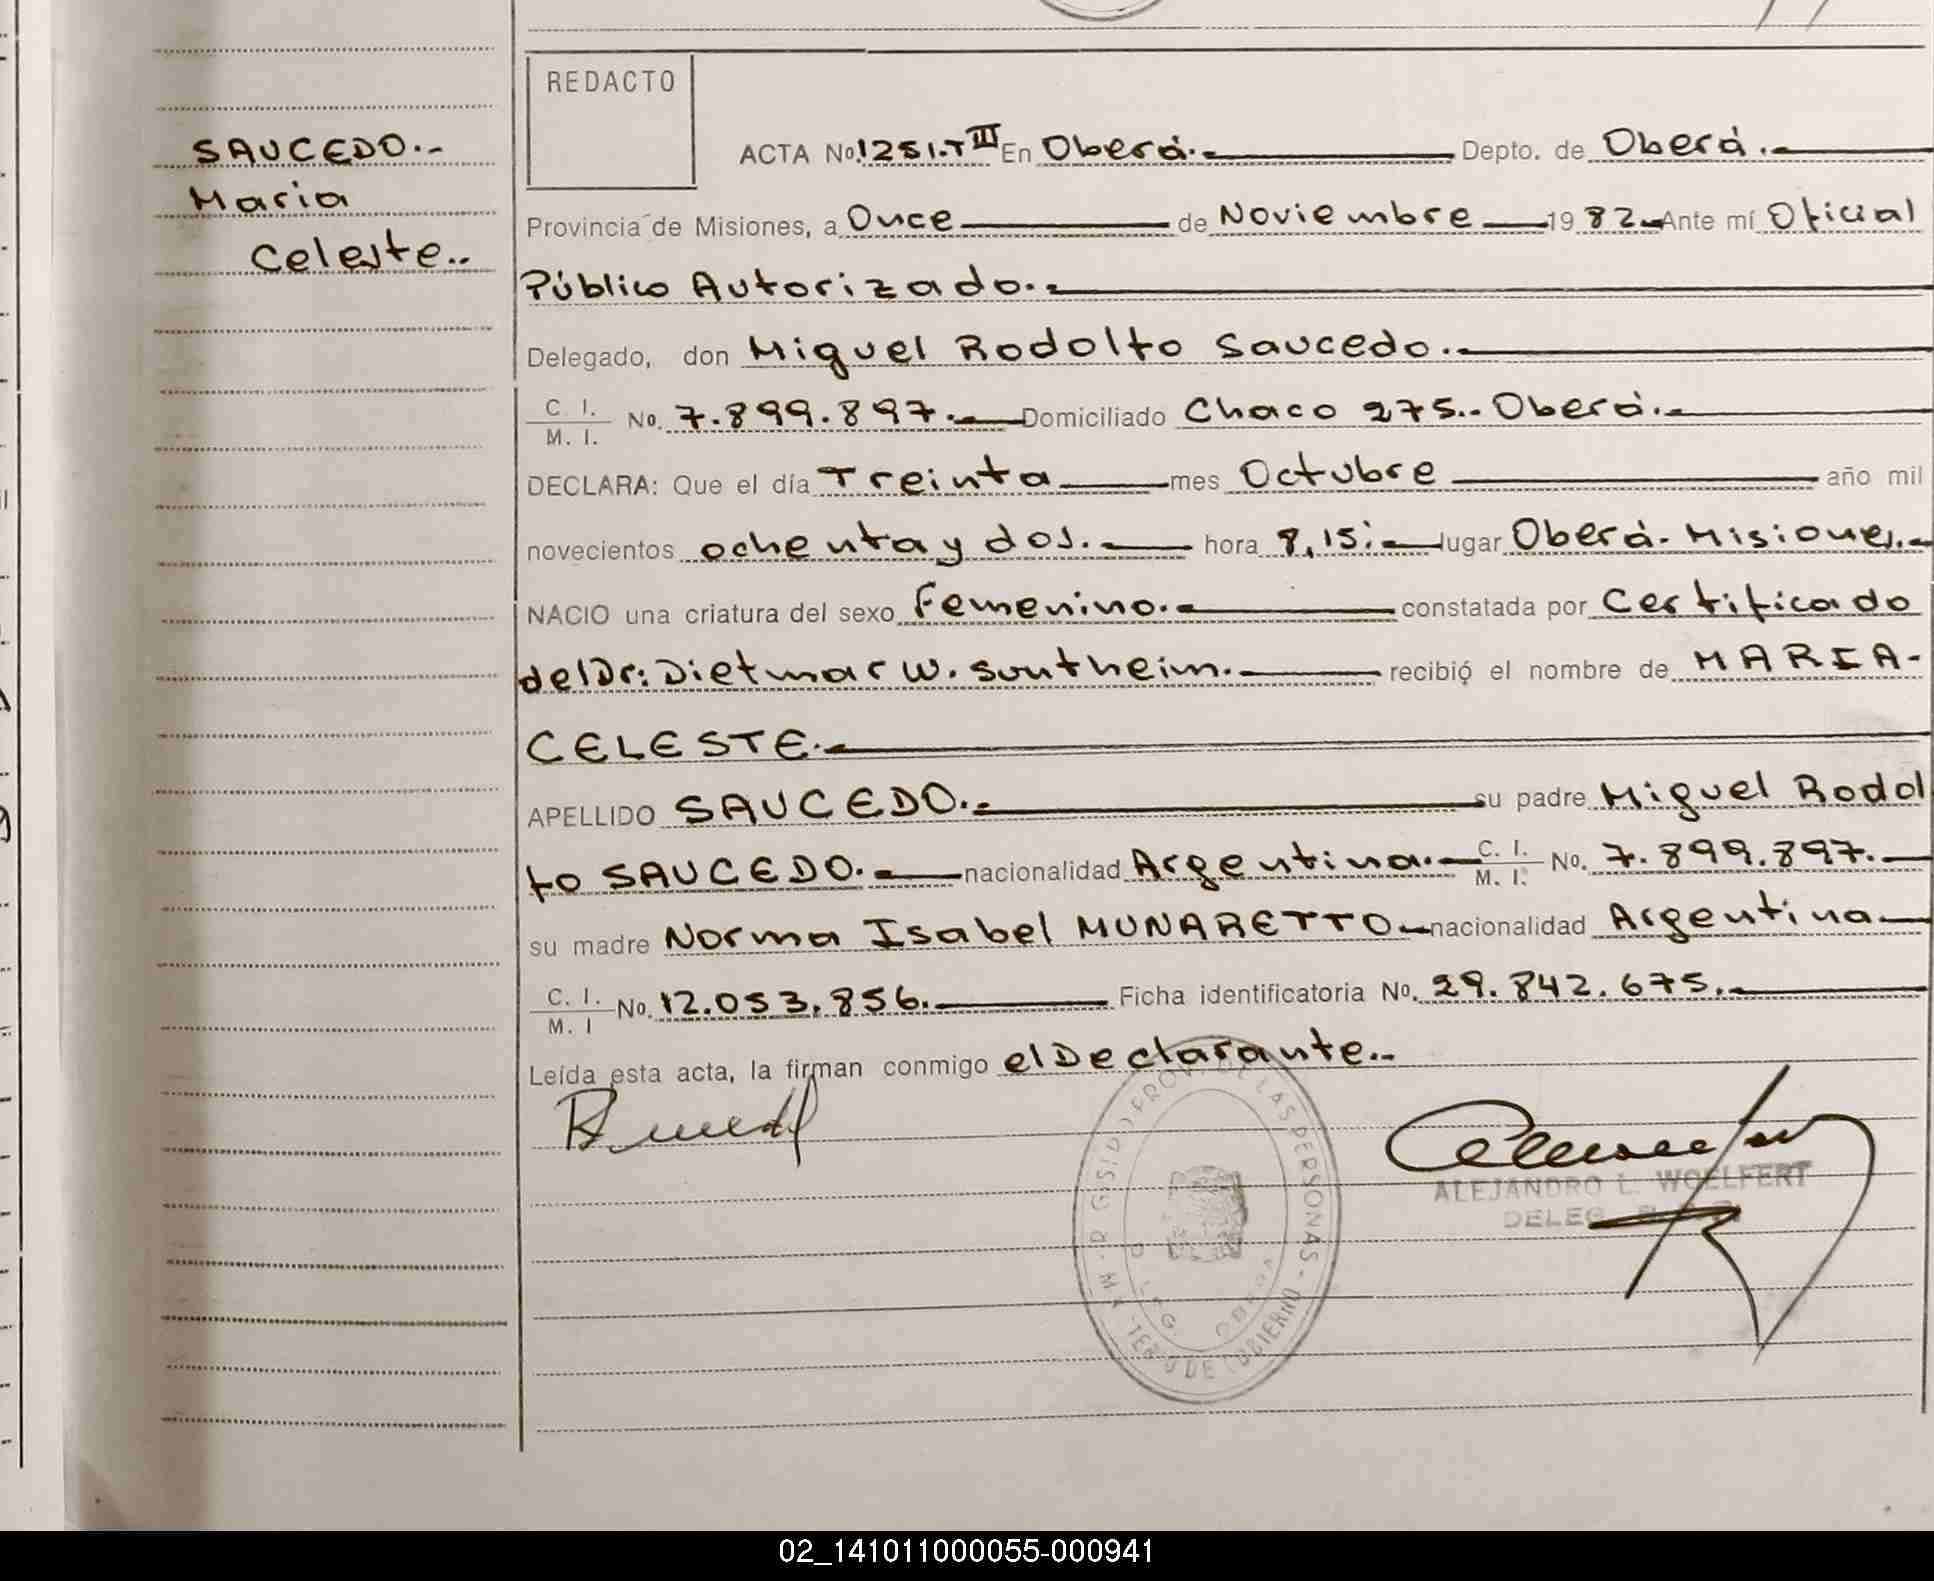 REDACTO
SAUCEDO.-
Maria
Celeste..
ACTA No. 1251.T III En Oberá.- Depto. de Oberá.-
Provincia de Misiones, a Once de Noviembre 1982 Ante mí Oficial
Público Autorizado.-
Delegado, don Miguel Rodolfo Saucedo.-
C. I. / M. I. No. 7.899.897.- Domiciliado Chaco 275.. Oberá.-
DECLARA: Que el día Treinta mes Octubre año mil
novecientos ochenta y dos.- hora 8,15.- lugar Oberá. Misiones.-
NACIO una criatura del sexo Femenino.- constatada por Certificado
del Dr: Dietmar W. Sontheim.- recibió el nombre de MARIA-
CELESTE.-
APELLIDO SAUCEDO.- su padre Miguel Rodol
fo SAUCEDO.- nacionalidad Argentina.- C. I. / M. I. No. 7.899.897.-
su madre Norma Isabel MUNARETTO- nacionalidad Argentina-
C. I. / M. I No. 12.053.856.- Ficha identificatoria No. 29.842.675.-
Leída esta acta, la firman conmigo el Declarante..
ALEJANDRO L. WOELFERT
DELEG
02_141011000055-000941